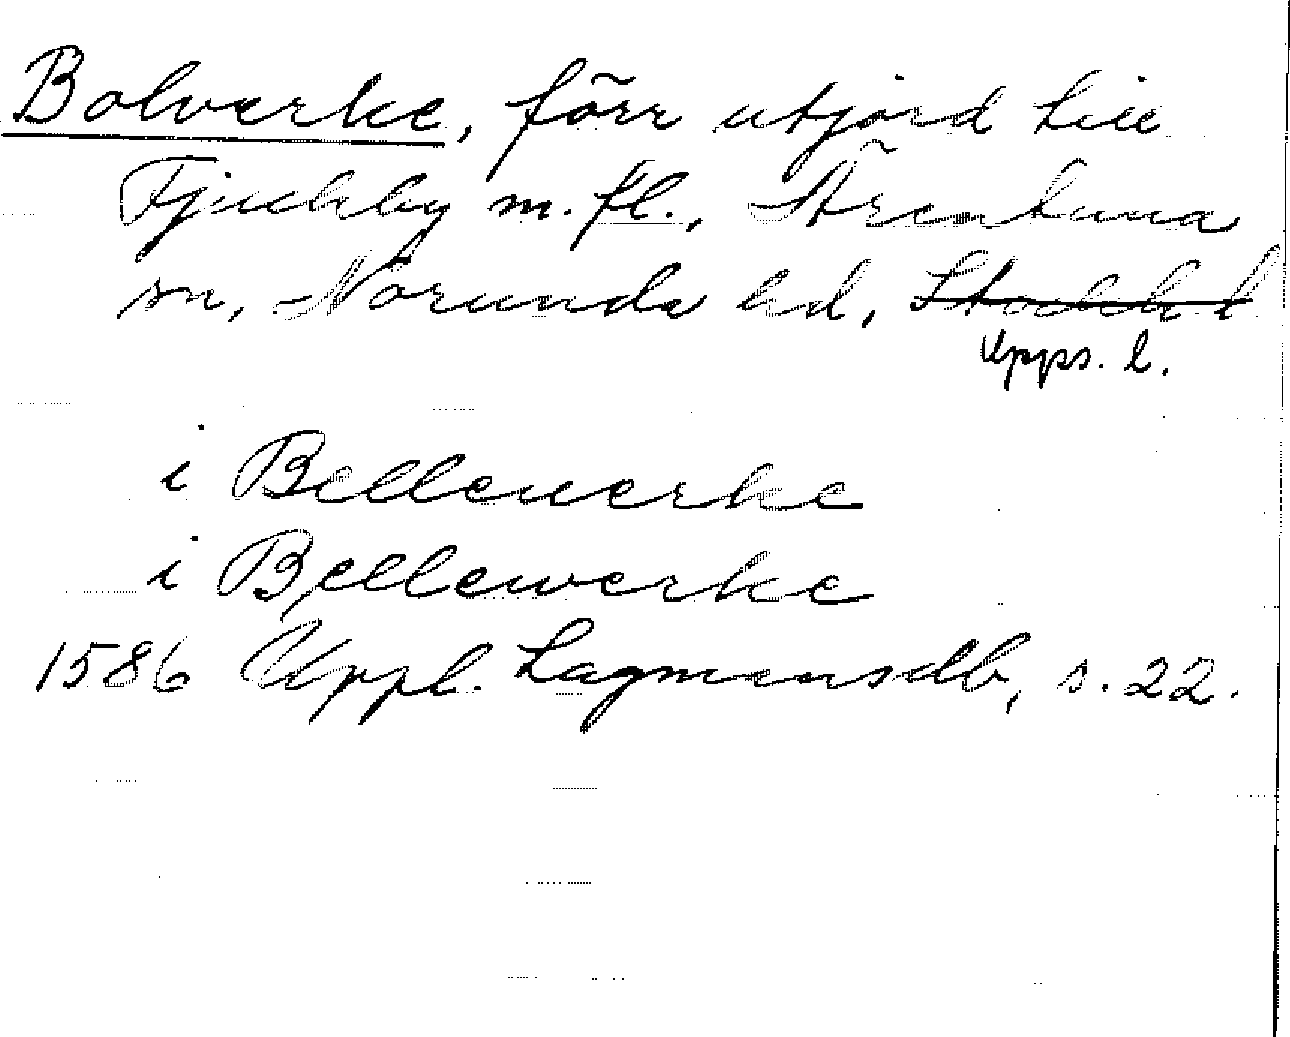 Bolverke, förr utjord till
Fjuckby m.fl., Ärentuna
sn, Norunda hd, Stockh. l
Upps. l.
i Bellewerke
i Bellewerke
1586 Uppl. Lagmansdb, s. 22.